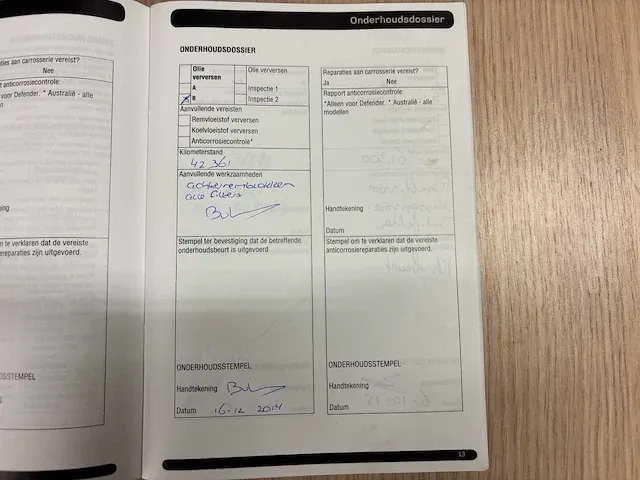 Onderhoudsdossier
ONDERHOUDSDOSSIER
Olie verversen
Olie verversen
A
Inspectie 1
B
Inspectie 2
Aanvullende vereisten
Remvloeistof verversen
Koelvloeistof verversen
Anticorrosiecontrole*
Kilometerstand
42 361
Aanvullende werkzaamheden
achterremblokken
alle filters
Stempel ter bevestiging dat de betreffende
onderhoudsbeurt is uitgevoerd.
ONDERHOUDSSTEMPEL
Handtekening
Datum 16-12 2014
Reparaties aan carrosserie vereist?
Ja Nee
Rapport anticorrosiecontrole:
*Alleen voor Defender. * Australië - alle
modellen
Handtekening
Datum
Stempel om te verklaren dat de vereiste
anticorrosiereparaties zijn uitgevoerd.
ONDERHOUDSSTEMPEL
Handtekening
Datum
13
aties aan carrosserie vereist?
Nee
anticorrosiecontrole:
voor Defender. * Australië - alle
en
ing
m te verklaren dat de vereiste
ereparaties zijn uitgevoerd.
DSSTEMPEL
ng